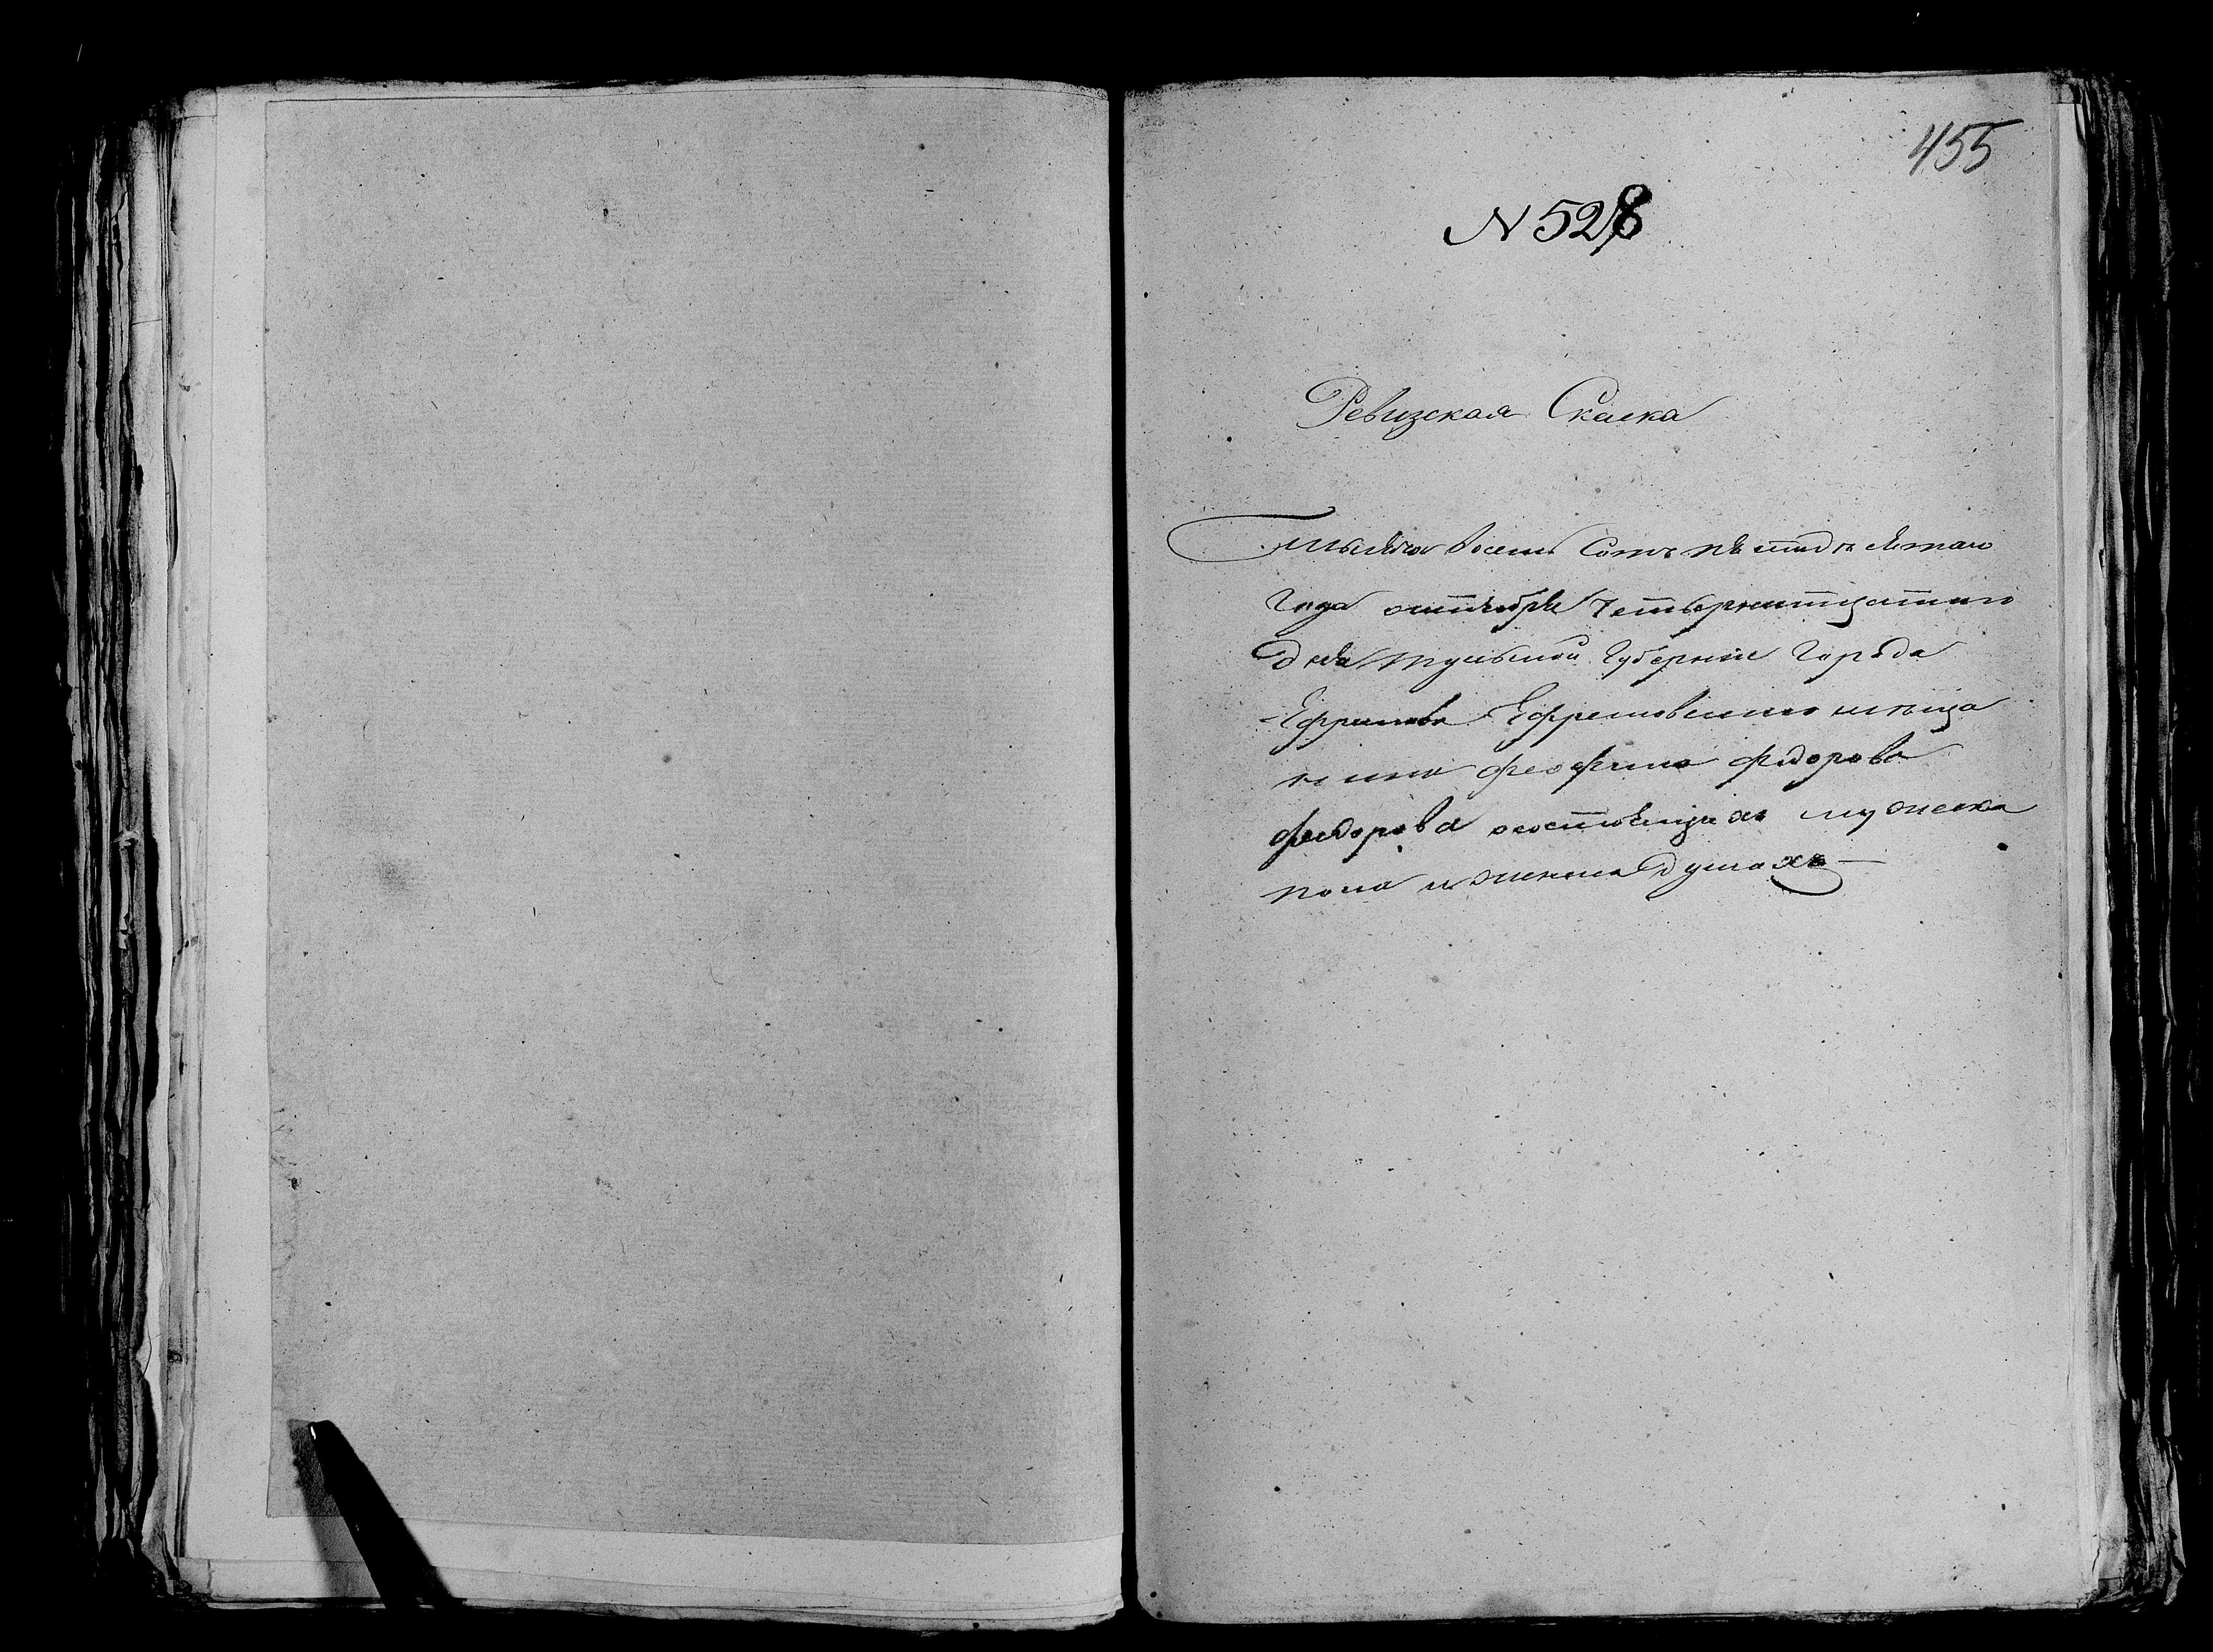 455
N 528
Ревизская Скаска
Тысяча восемь сотъ пятидесятаго
Года октября четырнатцатаго
дня Тульской Губернии Города
Ефремова Ефремовскаго меща
нина Федорова
Федорова состоящихъ мужеска
пола и женска душахъ